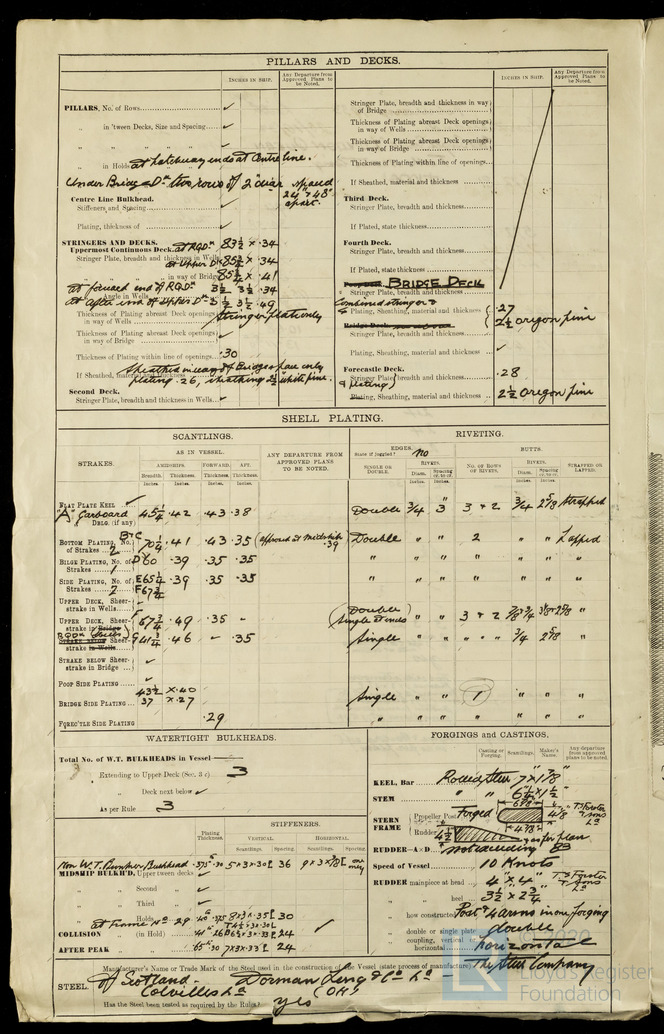 PILLARS AND DECKS.
INCHES IN SHIP.
Any Departure from Approved Plans to be Noted.
PILLARS, No. of Rows
„ in 'tween Decks, Size and Spacing
„ „ „ „
„ in Holds at hatchway ends at Centre line.
Under Bridge Dk two rows of 2" diar spaced 24" & 48" apart.
Centre Line Bulkhead.
Stiffeners and Spacing
Plating, thickness of
STRINGERS AND DECKS.
Uppermost Continuous Deck. at RQDk 83½ × .34
Stringer Plate, breadth and thickness in Wells at Upper Dk 85¾ × .34
„ „ „ in way of Bridge 85¾ × .41
at forward end of RQD 3½ 3½ .34
Angle in Wells at after end of Upper Dk 3½ 3½ .49
Thickness of Plating abreast Deck openings in way of Wells Stringer plate only
Thickness of Plating abreast Deck openings in way of Bridge
Thickness of Plating within line of openings .30
If Sheathed, material and thickness Sheathed in way of Bridge space only
plating .26, sheathing 2½" white pine.
Second Deck.
Stringer Plate, breadth and thickness in Wells
INCHES IN SHIP.
Any Departure from Approved Plans to be Noted.
Stringer Plate, breadth and thickness in way of Bridge
Thickness of Plating abreast Deck openings in way of Wells
Thickness of Plating abreast Deck openings in way of Bridge
Thickness of Plating within line of openings
If Sheathed, material and thickness
Third Deck.
Stringer Plate, breadth and thickness
If Plated, state thickness
Fourth Deck.
Stringer Plate, breadth and thickness
If Plated, state thickness
BRIDGE DECK
Stringer Plate, breadth and thickness
Combined stringer &
Plating, Sheathing, material and thickness .27 2½ oregon pine
Bridge Deck.
Stringer Plate, breadth and thickness
Plating, Sheathing, material and thickness
Forecastle Deck.
Stringer Plate, breadth and thickness .28
& plating
Plating, Sheathing, material and thickness 2½ oregon pine
SHELL PLATING.
SCANTLINGS.
RIVETING.
STRAKES.
AS IN VESSEL.
AMIDSHIPS.
FORWARD.
AFT.
Breadth. Thickness. Thickness. Thickness.
Inches. Inches. Inches. Inches.
ANY DEPARTURE FROM APPROVED PLANS TO BE NOTED.
EDGES.
State if joggled? no
SINGLE OR DOUBLE.
RIVETS.
Diam. Spacing cr. to cr.
BUTTS.
NO. OF ROWS OF RIVETS.
RIVETS.
Diam. Spacing cr. to cr.
STRAPPED OR LAPPED.
FLAT PLATE KEEL
"A" Garboard 45¼ .42 .43 .38 Double ¾ 3" 3 & 2 ¾ 2⅝ Strapped
DBLG. (if any)
BOTTOM PLATING, No. of Strakes 2 B & C 70¼ .41 .43 .35 approved at Midship .39 Double „ „ 2 „ „ Lapped
BILGE PLATING, No. of Strakes 1 D 60 .39 .35 .35 „ „ „ „ „ „ „
SIDE PLATING, No. of Strakes 2 E 65¼ .39 .35 .35 „ „ „ „ „ „ „
F 67¾
UPPER DECK, Sheerstrake in Wells
UPPER DECK, Sheerstrake in Bridge 67¾ .49 .35 „ Double Single at ends „ „ 3 & 2 ⅞ & ¾ 3⅛ & 2⅝ „
Sheerstrake in Wells G 41¾ .46 .35 Single „ „ „ „ ¾ 2⅝ „
STRAKE BELOW Sheerstrake in Bridge
POOP SIDE PLATING
BRIDGE SIDE PLATING 43½ × .40
37 × .27 Single „ „ 1 „ „ „
FORECASTLE SIDE PLATING .29 „ „ „ „ „ „
WATERTIGHT BULKHEADS.
Total No. of W.T. BULKHEADS in Vessel
3 Extending to Upper Deck (Sec. 3 c) 3
„ Deck next below
As per Rule 3
Plating Thickness.
STIFFENERS.
VERTICAL.
HORIZONTAL.
Scantlings. Spacing. Scantlings. Spacing.
Non W.T. Bunker Bulkhead 5 × 3 × .30 36 9 × 3 × 3/8
MIDSHIP BULKH'D, Upper tween decks
„ Second „
„ Third „
„ Holds 8 × 3 × .35 30
COLLISION (in Hold) at Frame No 29 24
AFTER PEAK 7 × 3 × .33 24
FORGINGS and CASTINGS.
Casting or Forging.
Scantlings.
Maker's Name.
Any departure from approved plans to be noted.
KEEL, Bar Rolled steel 7 × 1⅞"
STEM „ „ 6½ × 1½"
STERN FRAME
Propeller Post Forged 6⅞ 4⅛ T. Forster & Sons Ld
Rudder „ 4½ 4⅞ as for plan
RUDDER—A×D not exceeding 83
Speed of Vessel 10 Knots
RUDDER mainpiece at head 4" × 4" T. S. Forster & Sons Ld
„ „ heel 3½ × 2¾
„ how constructed Post & arms in one forging
„ double or single plate double
„ coupling, vertical or horizontal horizontal
STEEL.
Manufacturer's Name or Trade Mark of the Steel used in the construction of the Vessel (state process of manufacture) The Steel Company
of Scotland. Dorman Long & Co Ld
Colvilles Ld (OH)
Has the Steel been tested as required by the Rules? yes
© 2020
Lloyd's Register
Foundation